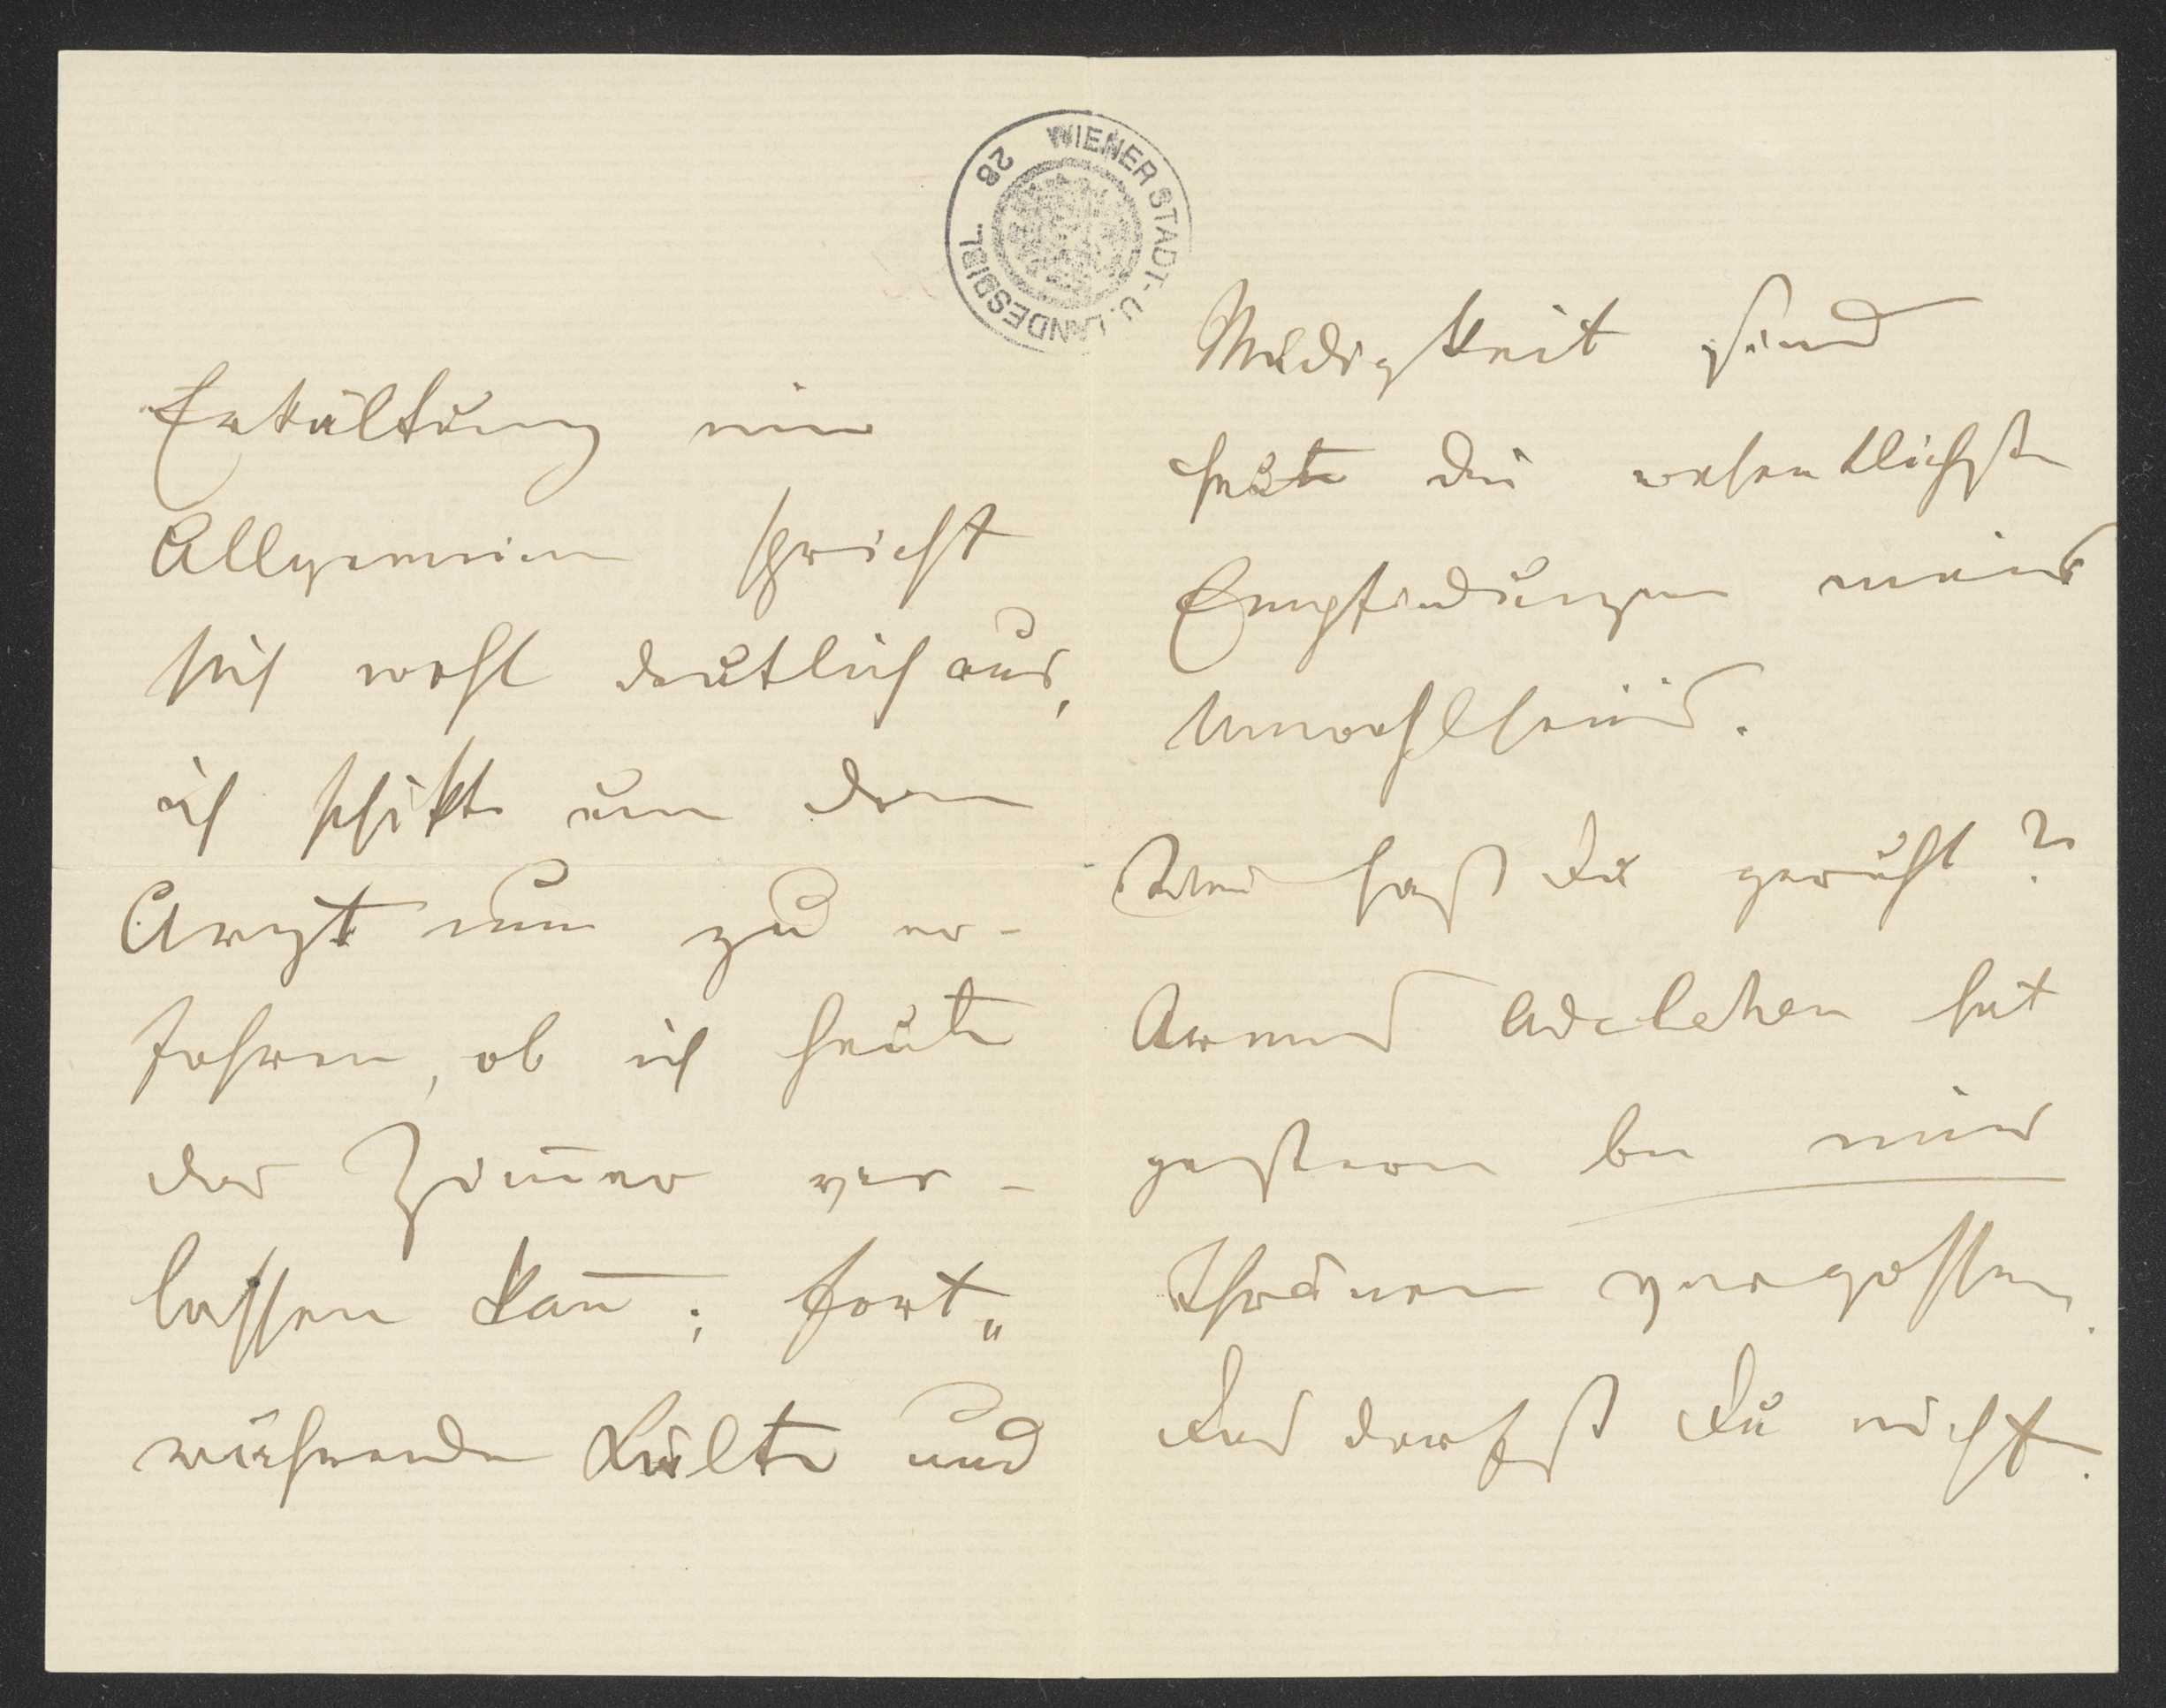 WIENER STADT- U. LANDESBIBL. 28
Erkältung im
Allgemeinen spricht
sich wohl deutlich aus,
ich schikte um den
Arzt um zu er-
fahren, ob ich heute
das Zim̅er ver-
lassen kan̅; fort„
währende Kälte und
Müdigkeit sind
heute die wesentlichsten
Empfindungen meines
Unwohlseins.
Wie hast Du geruht?
Armes Adelchen hat
gestern bei mir
Thränen vergossen.
Das darfst Du nicht.